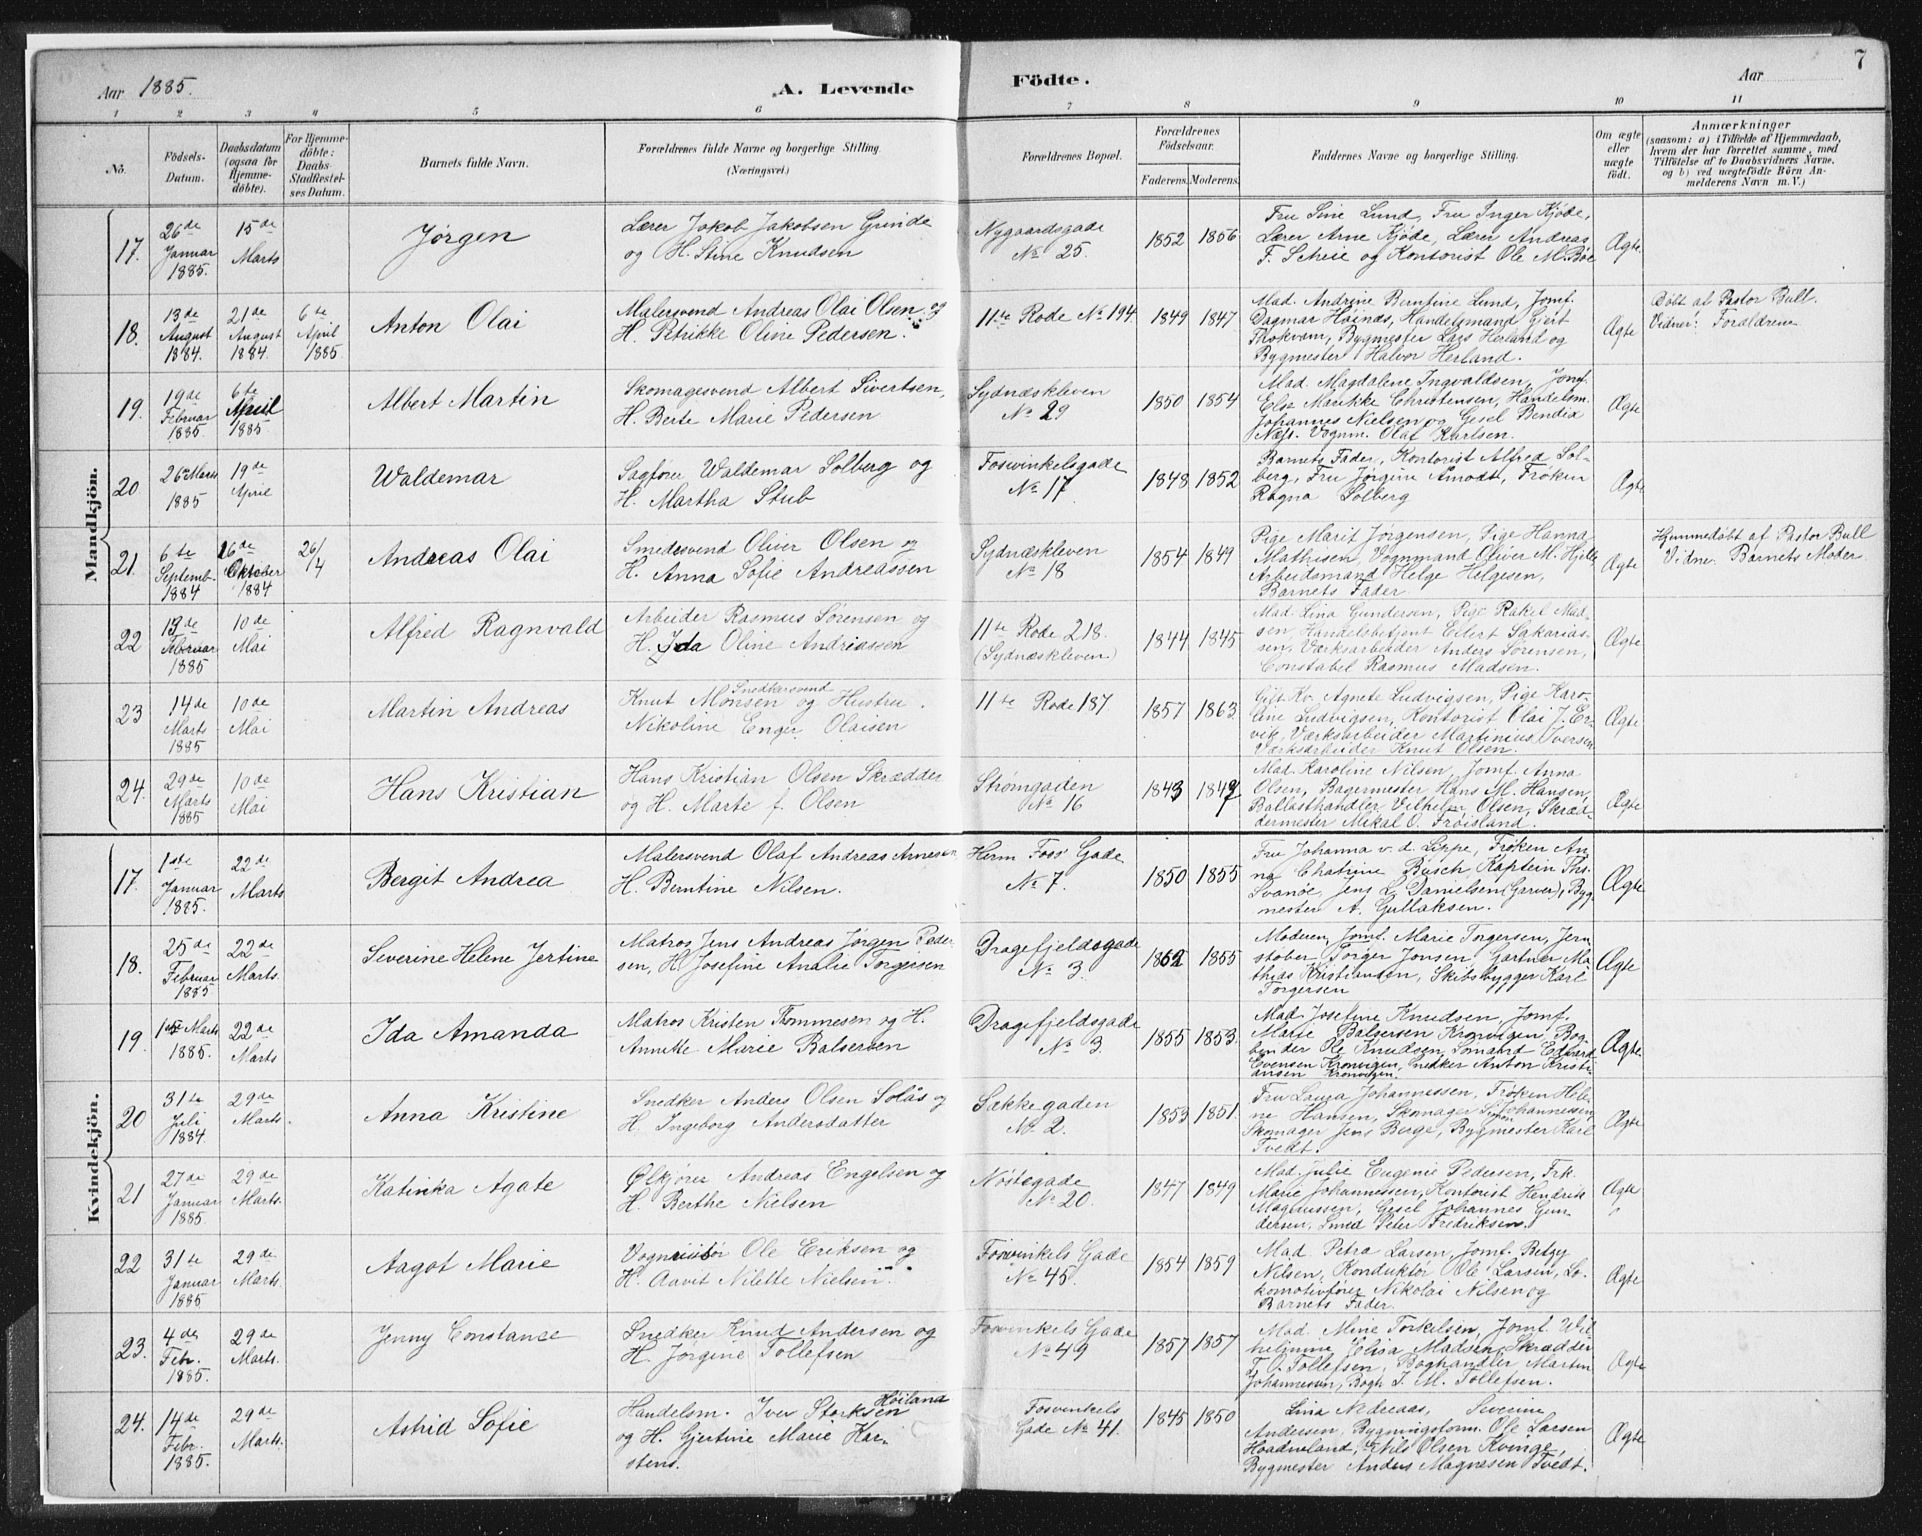 Aar 1885.
A. Levende
Födte.
Aar
7
1 2 3 4 5 6 7 8 9 10 11
No.
Födsels-
Datum.
Daabsdatum
(ogsaa för
Hjemme-
döbte).
For Hjemme-
döbte:
Daabs-
Stadfæstel-
ses Datum.
Barnets fulde Navn.
Forældrenes fulde Navne og borgerlige Stilling.
(Næringsvei.)
Forældrenes Bopæl.
Forældrenes
Födselsaar.
Faderens. Moderens.
Faddernes Navne og borgerlige Stilling.
Om ægte
eller
uægte
födt.
Anmærkninger
(saasom: a) i Tilfælde af Hjemmedaab,
hvem der har forrettet samme, med
Tilföielse af to Daabsvidners Navne.
og b) ved uægtefödte Börn An-
melderens Navn m. V.)
Mandkjön.
17.
26de
Januar
1885.
15de
Marts
Jørgen
Lærer Jakob Jakobsen Grinde
og H. Stine Knudsen
Nygaardsgade
No 25.
1852 1856
Fru Sine Lund, Fru Inger Kjøde,
Lærer Arne Kjøde, Lærer Andreas
F. Scheie og Kontorist Ole M. Bøe
Ægte
18.
13de
August
1884.
21de
August
1884.
6te
April
1885.
Anton Olai
Malersvend Andreas Olai Olsen og
H. Petrikke Oline Pedersen.
11te Rode No 194.
1849 1847
Mad. Andrine Berntine Lund, Jomf.
Dagmar Høinæs, Handelsmand Gjert
Thokvam, Bygmester Lars Herland og
Bygmester Halvor Herland.
Ægte
Døbt af Pastor Bull.
Vidner: Forældrene
19.
19de
Februar
1885.
6te
April
1885.
Albert Martin
Skomagesvend Albert Sivertsen,
H. Berte Marie Pedersen
Sydnæskleven
No 29
1850 1854
Mad. Magdalene Ingvaldsen, Jomf.
Else Marikke Christensen, Handelsm.
Johannes Nielsen og Gesel Bendix
Næss. Vognm. Olaf Karlsen.
Ægte
20
26de Marts
1885
19de
April
Waldemar
Sagfører Waldemar Solberg og
H. Martha Stub
Foswinkelsgade
No 17.
1848 1852
Barnets Fader, Kontorist Alfred Sol-
berg, Fru Jørgine Amodt, Frøken
Ragna Solberg
Ægte
21.
6te
Septemb.
1884
16de
Oktober
1884
26/4
Andreas Olai
Smedesvend Oliver Olsen og
H. Anna Sofie Andreassen
Sydnæskleven
No 18
1854 1849
Pige Marit Jørgensen, Pige Hanna
Mathisen, Vognmand Oliver M. Hjelle
Arbeidsmand Helge Helgesen,
Barnets Fader
Ægte
Hjemmedøbt af Pastor Bull
Vidne. Barnets Moder
22
13de
Februar
1885
10de
Mai
Alfred Ragnvald
Arbeider Rasmus Sørensen og
H. Ida Oline Andreassen
11te Rode 218.
(Sydnæskleven)
1844 1845
Mad. Lina Gundersen, Pige Rakel Mad-
sen, Handelsbetjent Eilert Sakarias-
sen, Værksarbeider Anders Sørensen,
Constabel Rasmus Madsen.
Ægte
23
14de
Marts
1885
10de
Mai
Martin Andreas
Snedkersvend
Knut Monsen og Hustru.
Nikoline Enger Olaisen
11te Rode 187
1857 1863
Gift Kv. Agnete Ludvigsen, Pige Karo-
line Ludvigsen, Kontorist Olai J. Er-
vig, Værksarbeider Martinius Iversen
Værksarbeider Knut Olsen.
Ægte
24.
29de
Marts
1885
10de
Mai
Hans Kristian
Hans Kristian Olsen Skrædder
og H. Marte f. Olsen
Strømgaden
No 16
1843 1847
Mad. Karoline Nilsen, Jomf. Anna
Olsen, Bagermester Hans M. Hansen,
Ballasthandler Vilhelm Olsen, Skræd-
dermester Mikal O. Frøisland.
Ægte
Kvindekjön.
17.
1ste
Januar
1885.
22de
Marts
Bergit Andrea
Malersvend Olaf Andreas Arnesen,
H. Berntine Nilsen.
Herm Foss' Gade
No 7.
1850 1855
Fru Johanna v. d. Lippe, Frøken An-
na Chatrine Busch Kaptein Ths.
Svanøe, Jens L. Danielsen (Garver), Byg-
mester A. Gullaksen.
Ægte
18.
25de
Februar
1885
22de
Marts.
Severine Helene Jertine
Matros Jens Andreas Jørgen Peder-
sen, H. Josefine Analie Torgersen
Dragefjeldsgade
No 3.
1852 1855
Moderen, Jomf. Marie Torgersen, Jern-
støber Torger Jonsen, Gartner Ma-
thias Kristiansen, Skibsbygger Karl
Torgersen
Ægte
19
1ste Marts
1885.
22de
Marts
Ida Amanda
Matros Kristen Thommesen og H.
Annette Marie Balsersen
Dragefjeldsgade
No 3.
1855 1853.
Mad. Josefine Knudsen, Jomf.
Marie Balsersen Kronvigen Bog-
binder Ole Knudsen, Sømand Edvard
Evensen Kronvigen, Snedker Anton Kristi-
ansen Kronvigen.
Ægte
20
31te
Juli
1884
29de
Marts.
Anna Kristine
Snedker Anders Olsen Solås og
H. Ingeborg Andersdatter
Sækkegaden
No 2.
1853 1851.
Fru Laura Johannessen, Frøken Hele-
ne Hansen, Skomager Simon Johannesen,
Skomager Jens Berge, Bygmester Karl
Tvedt.
Ægte
21
27de
Januar
1885.
29de
Marts.
Katinka Agate
Ølkjører Andreas Engelsen og
H. Berthe Nielsen
Nøstegade
No 20.
1847 1849
Mad. Julie Eugenie Pedersen, Frk.
Marie Johannessen, Kontorist Hendrik
Magnussen, Gesel Johannes Gun-
dersen, Smed Peter Fredriksen.
Ægte
22
31te
Januar
1885
29de
Marts.
Aagot Marie
Vognvisitør Ole Eriksen og
H. Aavit Nilette Nielsen.
Foswinkels Gade
No 45.
1854 1859
Mad. Petra Larsen, Jomf. Betzy
Nilsen, Konduktør Ole Larsen, Lo-
komotivfører Nikolai Nilsen og
Barnets Fader.
Ægte
23.
4de
Febr.
1885.
29de
Marts.
Jenny Constance
Snedker Knud Andersen og
H. Jørgine Tollefsen
Foswinkels Gade
No 49
1857 1857
Mad. Mine Torkilsen, Jomf. Wil-
helmine Elisa Madsen, Skrædder
T. O. Tollefsen, Boghandler Martin
Johannesen, Bogh. T. M. Tollefsen.
Ægte
24.
14de
Febr.
1885.
29de
Marts.
Astrid Sofie
Handelsm. Iver Storksen Høiland
og H. Gjertine Marie Kar-
stens.
Foswinkels
Gade No 41.
1845 1850
Lina Nedreaas, Severine
Andersen, Bygningstøm. Ole Larsen
Nils Olsen Kvinge,
Bygmester Anders Magnesen Tvedt.
Ægte